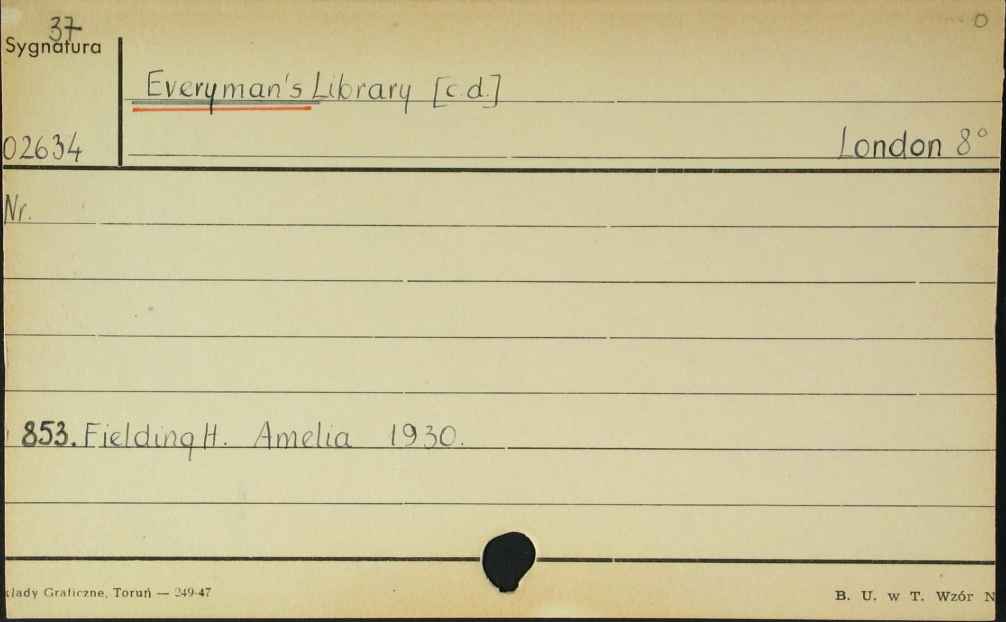 37
Sygnatura
Everyman's Library [c d.]
02634
London 8°
Nr.
853. Fielding H. Amelia 1930.
kłady Graficzne, Toruń — 249-47
B. U. w T. Wzór N